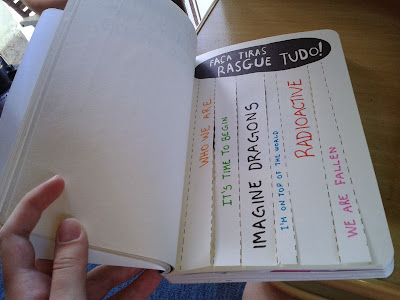 FAÇA TIRAS
RASGUE TUDO!
WHO WE ARE
IT'S TIME TO BEGIN
IMAGINE DRAGONS
I'M ON TOP OF THE WORLD
RADIOACTIVE
WE ARE FALLEN